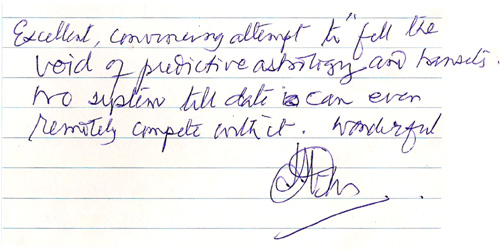 Excellent, convincing attempt to "fell the
void of predictive astrology and transits.
No system till date is can even
remotely compete with it. Wonderful